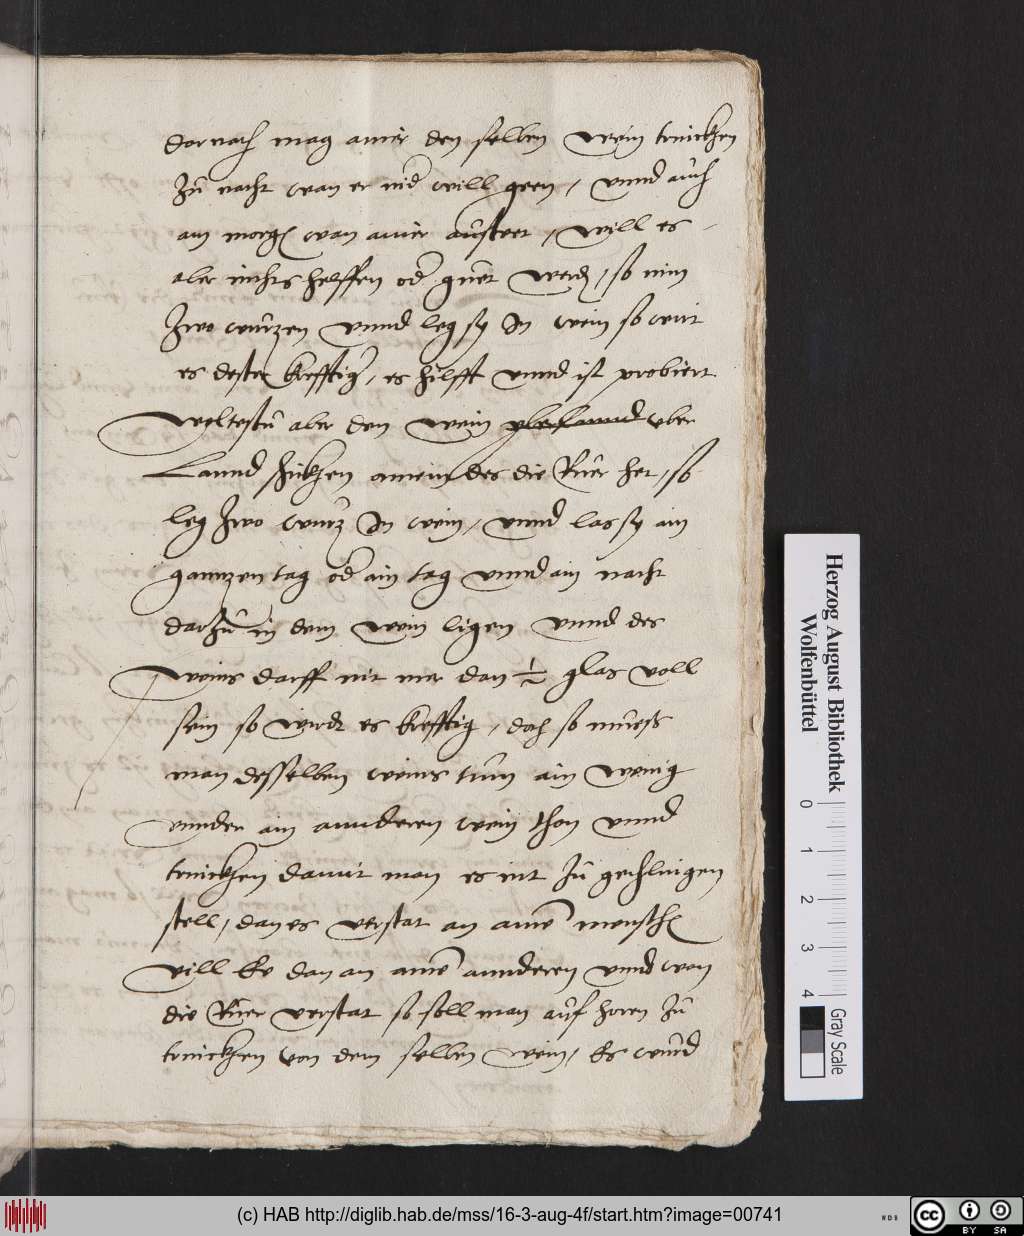 dornach mag ainer den selben wein trinckhen
zu nacht wan er nid will geen / vnnd auch
am morg wan ainer aufsteet / will es
aber nichts helffen od guet werd / so nim
zwo wurzen vnnd leg sy In wein so wirt
es dester krefftig / es hilfft vnnd ist probiert
Woltestu aber den wein vber
Lannd schickhen ainem der die Ruer het / so
leg zwo wurz In wein / vnnd las sy ain
ganntzen tag od ain tag vnnd ain nacht
darzu in dem wein ligen vnnd des
Weins darff nit mer dan 1/2 glas voll
sein so wirdt es krefftig / doch so mues
man desselben weins tun ain wenig
vnnder ain annderen wein thon vnnd
trinckhen damit man es nit zu gechlingen
stell / dan es verstat an aine mensch
vill Ee dan an aine annderen vnnd wan
die Ruer verstat so soll man auf horen zu
trinckhen von dem selben wein / Es wurd
Herzog August Bibliothek
Wolfenbüttel
0 1 2 3 4
Gray Scale
(c) HAB http://diglib.hab.de/mss/16-3-aug-4f/start.htm?image=00741
WDB
cc BY SA